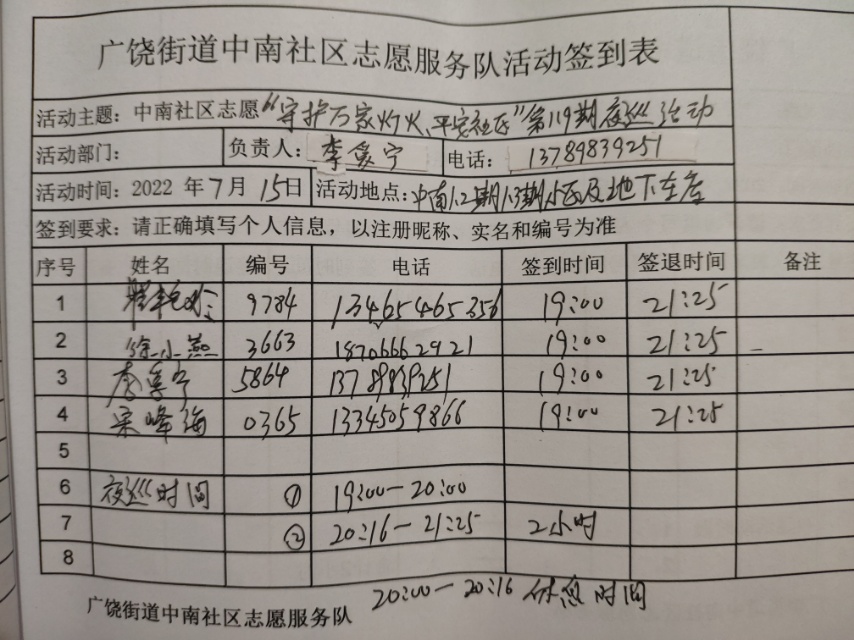 广饶街道中南社区志愿服务队活动签到表
活动主题：中南社区志愿“守护万家灯火、平安社区”第119期夜巡活动
活动部门： 负责人：李宁 电话：13789839251
活动时间：2022年7月15日 活动地点：中南1.2期1.3期小区及地下车库
签到要求：请正确填写个人信息，以注册昵称、实名和编号为准
序号 姓名 编号 电话 签到时间 签退时间 备注
1 9784 13465465356 19:00 21:25
2 徐小燕 3663 18706662921 19:00 21:25
3 李宁 5864 13789839251 19:00 21:25
4 宋峰海 0365 13345059866 19:00 21:25
5
6 夜巡时间 ① 19:00-20:00
7 ② 20:16-21:25 2小时
8
广饶街道中南社区志愿服务队 20:00-20:16 休息时间